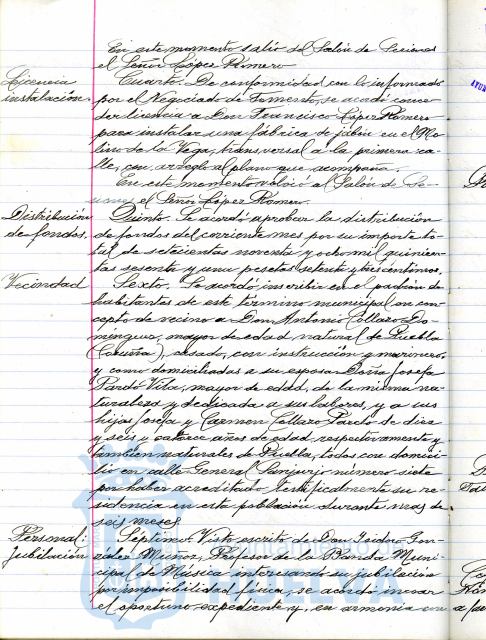 En este momento salió del Salón de Sesiones
el Señor López Romero
Licencia
instalación.
Cuarto. De conformidad con lo informado
por el Negociado de Fomento, se acordó conce-
der licencia a Don Francisco López Romero
para instalar una fábrica de jabón en el Mo-
lino de la Vega, transversal a la primera ca-
lle, con arreglo al plano que acompaña.
En este momento volvió al Salón de Se-
siones el Señor López Romero.
Distribución
de fondos.
Quinto. Se acordó aprobar la distribución
de fondos del corriente mes por su importe to-
tal de setecientas noventa y ocho mil quinien-
tas sesenta y una pesetas setenta y tres céntimos.
Vecindad
Sexto. Se acordó inscribir en el padrón de
habitantes de este término municipal en con-
cepto de vecino a Don Antonio Collazo Do-
mínguez, mayor de edad natural de Puebla
(Coruña), casado, con instrucción y marinero,
y como domiciliadas a su esposa Doña Josefa
Pardo Vila, mayor de edad, de la misma na-
turaleza y dedicada a sus labores, y a sus
hijas Josefa y Carmen Collazo Pardo de diez
y seis y catorce años de edad respectivamente y
también naturales de Puebla, todos con domici-
lio en calle General Sanjurjo número siete
por haber acreditado testificalmente su re-
sidencia en esta población durante más de
seis meses.
Personal:
Jubilación
Septimo. Visto escrito de Don Isidro Gon-
zález Muñoz, Profesor de la Banda Muni-
cipal de Música interesando su jubilación
por imposibilidad física, se acordó incoar
el oportuno expediente y, en armonía con
HUELVA